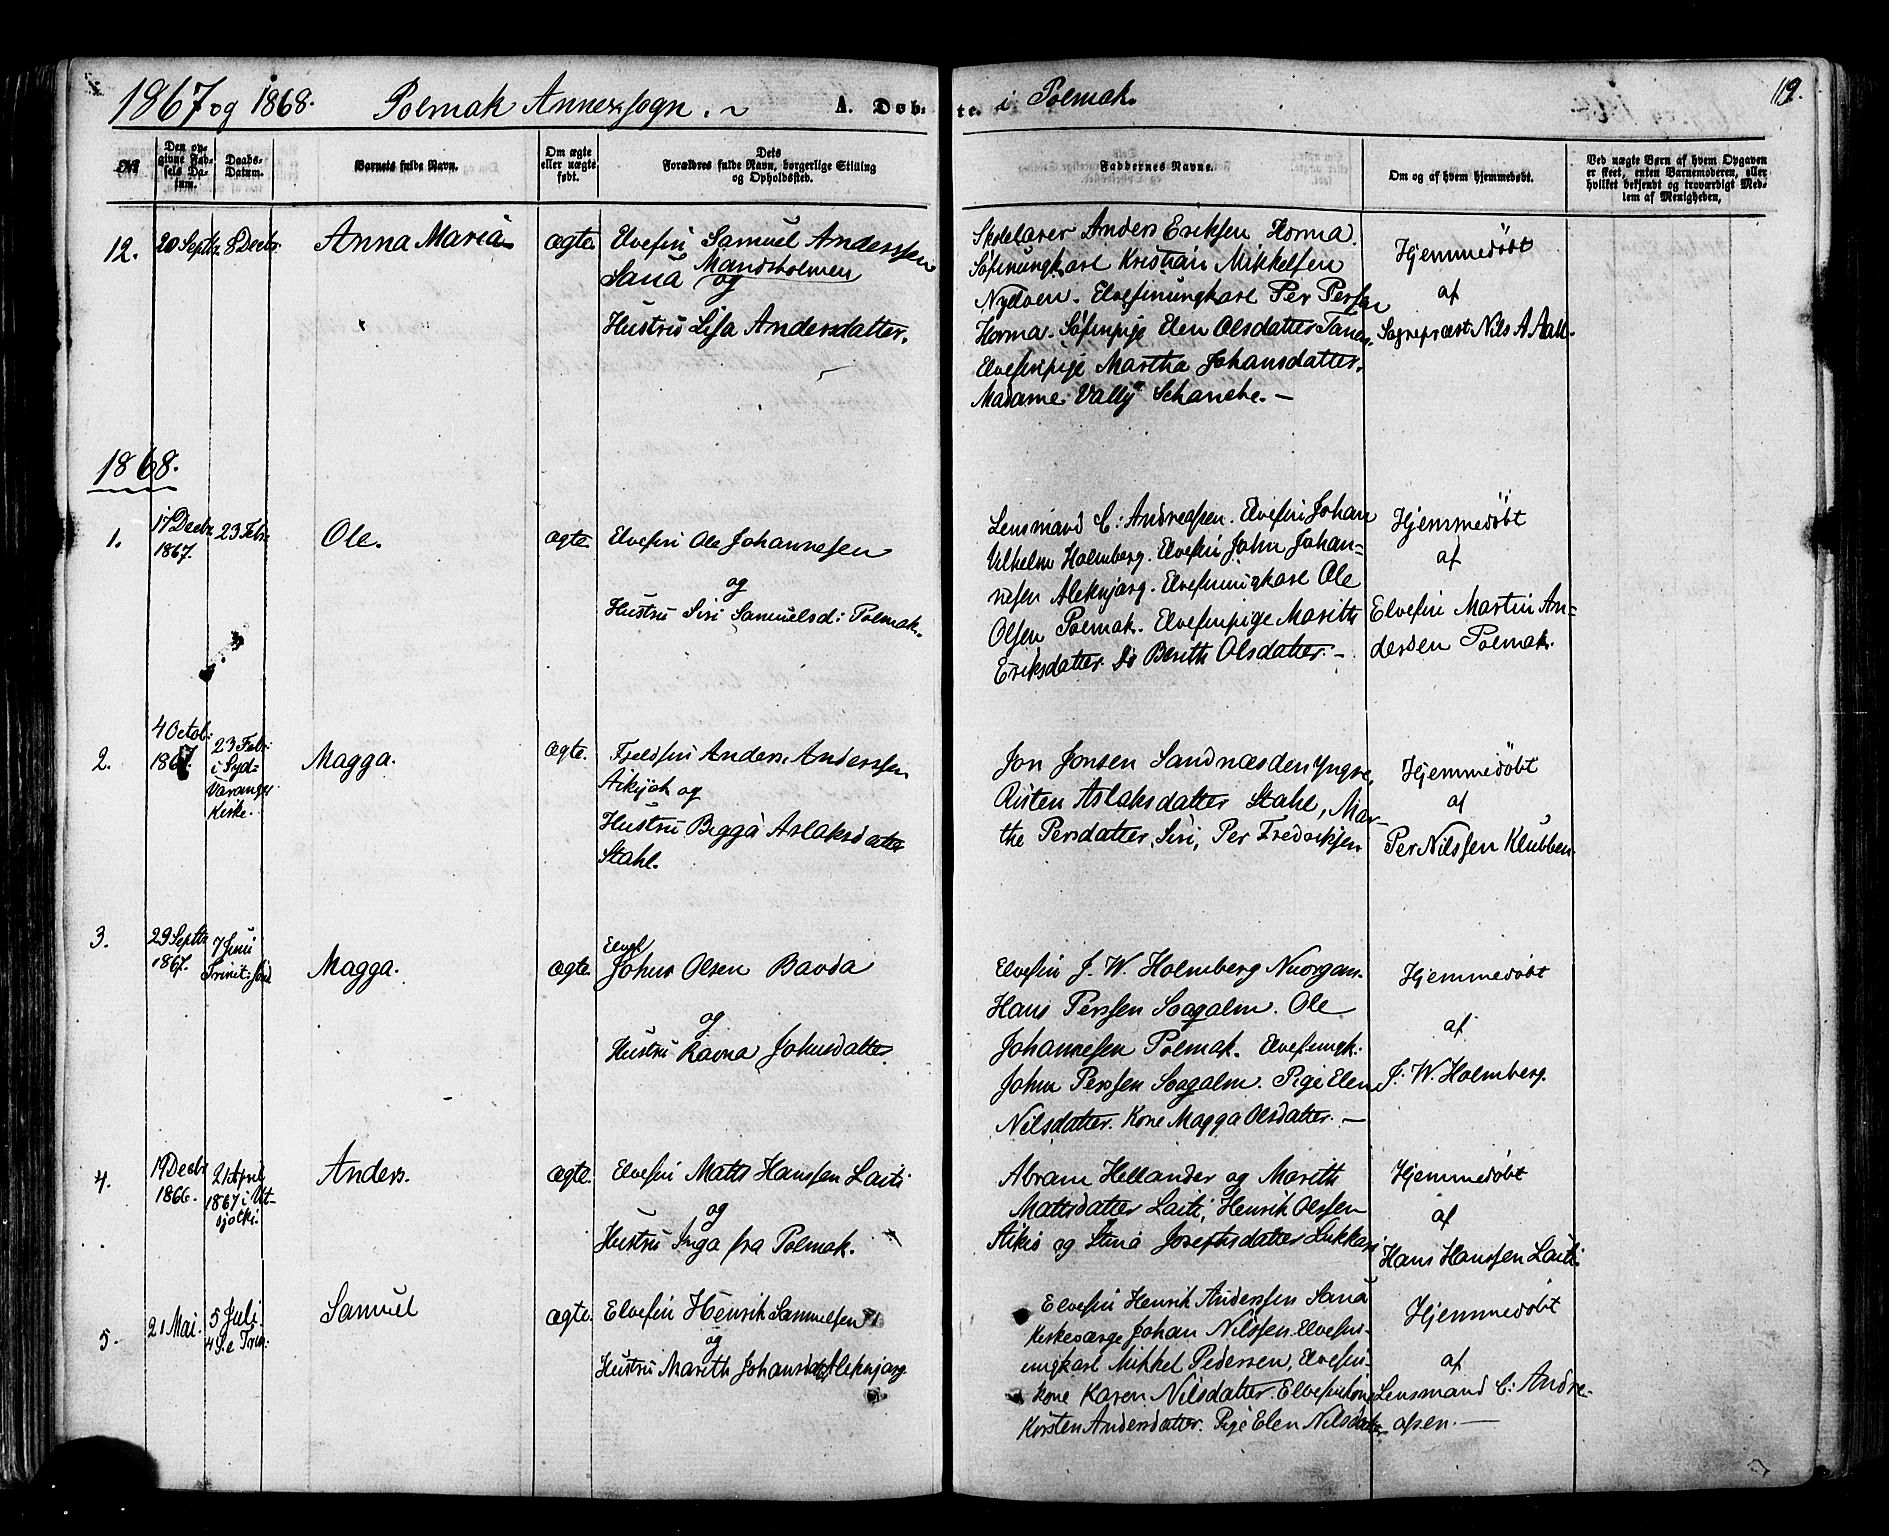 1867 og 1868. Polmak Annexsogn. A. Døbte. i Polmak. 119.
No
Den opgivne Fødsels Datum.
Daabs-Datum.
Barnets fulde Navn.
Om ægte eller uægte født.
Dets Forældres fulde Navn, borgerlige Stilling og Opholdssted.
Faddernes Navne.
Om og af hvem hjemmedøbt.
Ved uægte Børn af hvem Opgaven er skeet, enten Barnemoderen, eller hvilket bekjendt og troværdigt Medlem af Menigheden,
12.
20 Septbr.
8 Decbr.
Anna Maria
ægte
Elvefin Samuel Anderssen
Sana Mandsholmen
og
Hustru Lisa Andersdatter.
Skolelærer Anders Eriksen Horma.
Søfinungkarl Kristian Mikkelsen
Nyboen. Elvefinungkarl Per Persen
Horma. Søfinpige Elen Olsdatter Tanen.
Elvefinpige Martha Johansdatter.
Madame Vally Schanche. —
Hjemmedøbt
af
Sognepræst Nils A Aall.
1868.
1.
17 Decbr
1867.
23 Febr.
Ole.
ægte
Elvefin Ole Johannesen
og
Hustru Siri Samuelsd: Polmak.
Lensmand C: Andreassen. Elvefin Johan
Vilhelm Holmberg. Elvefin John Johan-
nesen Aleknjarg. Elvefinungkarl Ole
Olsen Polmak. Elvefinpige Marith
Eriksdatter. Do Berith Olsdatter. —
Hjemmedøbt
af
Elvefin Martin An-
dersen Polmak.
2.
4 Octob:
1867.
23 Febr:
i Syd-
Varanger
Kirke.
Magga.
ægte.
Fjeldfin Anders Anderssen
Aikijok og
Hustru Bigga Aslaksdatter
Stahl.
Jon Jonsen Sandnæs den Yngre,
Risten Aslaksdatter Stahl, Mar-
the Persdatter, Siri, Per Fredriksen
Hjemmedøbt
af
Per Nilssen Klubben.
3.
29 Septbr
1867.
7 Juni
Trinit: Sønd
Magga.
ægte.
Elvef
Johns Olsen Bavda
og
Hustru Ravna Johnsdatter.
Elvefin J. W. Holmberg Nuorgam.
Hans Perssen Soagalm. Ole
Johannesen Polmak. Elvefinungk.
John Perssen Soagalm. Pige Elen
Nilsdatter. Kone Magga Olsdatter. —
Hjemmedøbt
af
J. W. Holmberg.
4.
19 Decbr
1866.
21 April
1867 i Ut-
sjokki.
Anders.
ægte.
Elvefin Matts Hanssen Laiti
og
Hustru Inga fra Polmak.
Abram Hellander og Marith
Mattsdatter Laiti, Henrik Olssen
Aikio og Stina Josephsdatter Lukkari.
Hjemmedøbt
af
Hans Hanssen Laiti.
5.
21 Mai.
5 Juli.
4 S. e Trin:
Samuel
ægte.
Elvefin Henrik Samuelsen
og
Hustru Marith Johansdatter Aleknjarg.
Elvefin Henrik Anderssen Sana
Kirkeværge Johan Nilssen. Elvefin-
ungkarl Mikkel Pedersen, Elvefin-
kone Karen Nilsdatter. Elvefinkone
Kirsten Andersdatter. Pige Elen Nilsdatter
Hjemmedøbt
af
Lensmand C: Andre-
assen. —